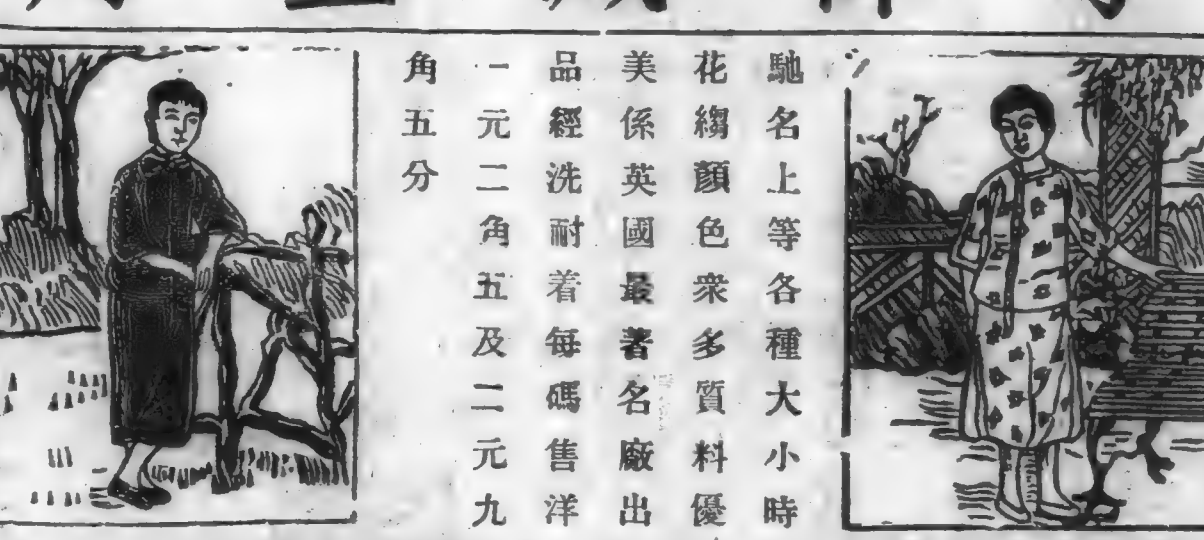 馳名上等各種大小時
花縐顏色衆多質料優
美係英國最著名廠出
品經洗耐着每碼售洋
一元二角五及二元九
角五分